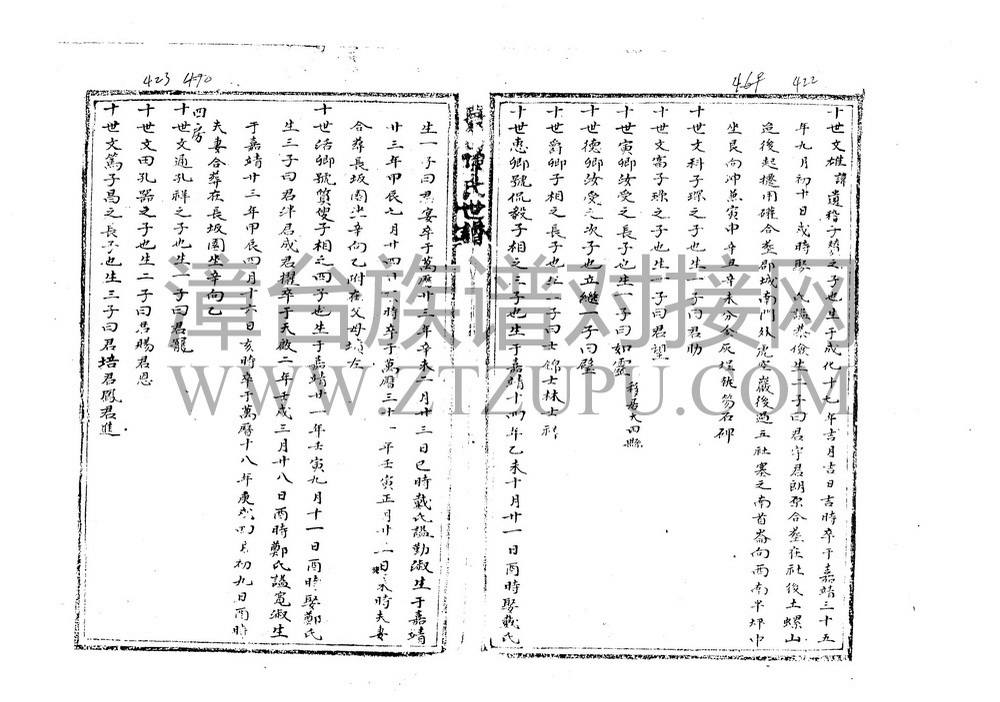 464 422
十世文雄諱遺稽子箕之子也生于成化十七年吉月吉日吉時卒于嘉靖三十五
年九月初十日戌時娶 氏謚慈儉生一子曰君宇君朗原合葬在社後土螺山
迄後起遷用確合葬郡城南門外 巖後過五社寨之南首崙向西南半埤中
坐艮向坤兼寅申辛丑辛未分金灰 碑
十世文科子璨之子也生一子曰君助
十世文富子璪之子也生一子曰君望
十世寅卿汝受之長子也生一子曰如靈 移居大田縣
十世德卿汝受之次子也立繼一子曰璧
十世爵卿子相之長子也生一子曰士錦士林士
十世惠卿號侃毅子相之三子也生于嘉靖十四年乙未十月廿一日酉時娶戴氏
陳氏世譜
423 490
生一子曰君宴卒于萬曆廿三年辛未二月廿三日巳時戴氏謚勤淑生于嘉靖
廿三年甲辰七月廿四日 時卒于萬曆三十一年壬寅正月廿二日未時夫妻
合葬長坂園坐辛向乙附在父母墳左
十世活卿號質叟子相之四子也生于嘉靖廿一年壬寅九月十一日酉時娶鄭氏
生三子曰君津君成君 卒于天啟二年壬戌三月廿八日酉時鄭氏謚寬淑生
于嘉靖廿三年甲辰四月十六日亥時卒于萬曆十八年庚 四月初九日酉時
夫妻合葬在長坂園坐辛向乙
四房
十世文通孔祥之子也生一子曰君寵
十世文田孔器之子也生二子曰君賜君恩
十世文篤子昌之長子也生三子曰君培君 君進
漳台族谱对接网
WWW.ZTZUPU.COM